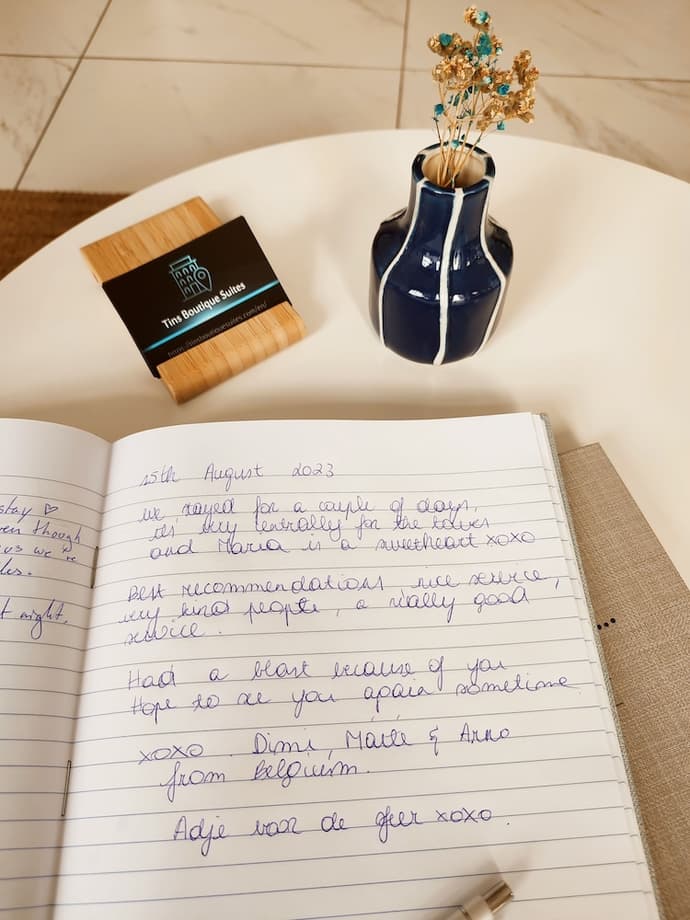 Tins Boutique Suites
https://tinsboutiquesuites.com/en/
stay ♡
even though
we're
night.
15th August 2023
we stayed for a couple of days,
its very centrally for the
and Maria is a sweetheart xoxo
Best recommendations, nice service,
very kind people, a really good
service.
Had a blast because of you
Hope to see you again sometime
xoxo. Dimi, & Arno
from Belgium.
Adje voor de sfeer xoxo.